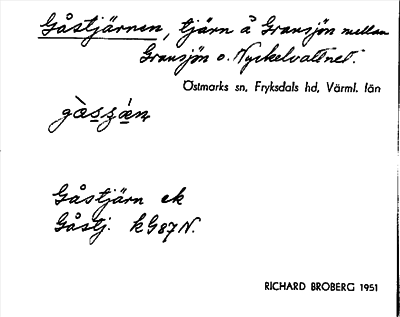 Gåstjärnen, tjärn å Gransjön mellan
Gransjön o. Nyckelvattnet.
Östmarks sn, Fryksdals hd, Värml. län
Gåstjärn ek
Gåstj. kG87N.
RICHARD BROBERG 1951